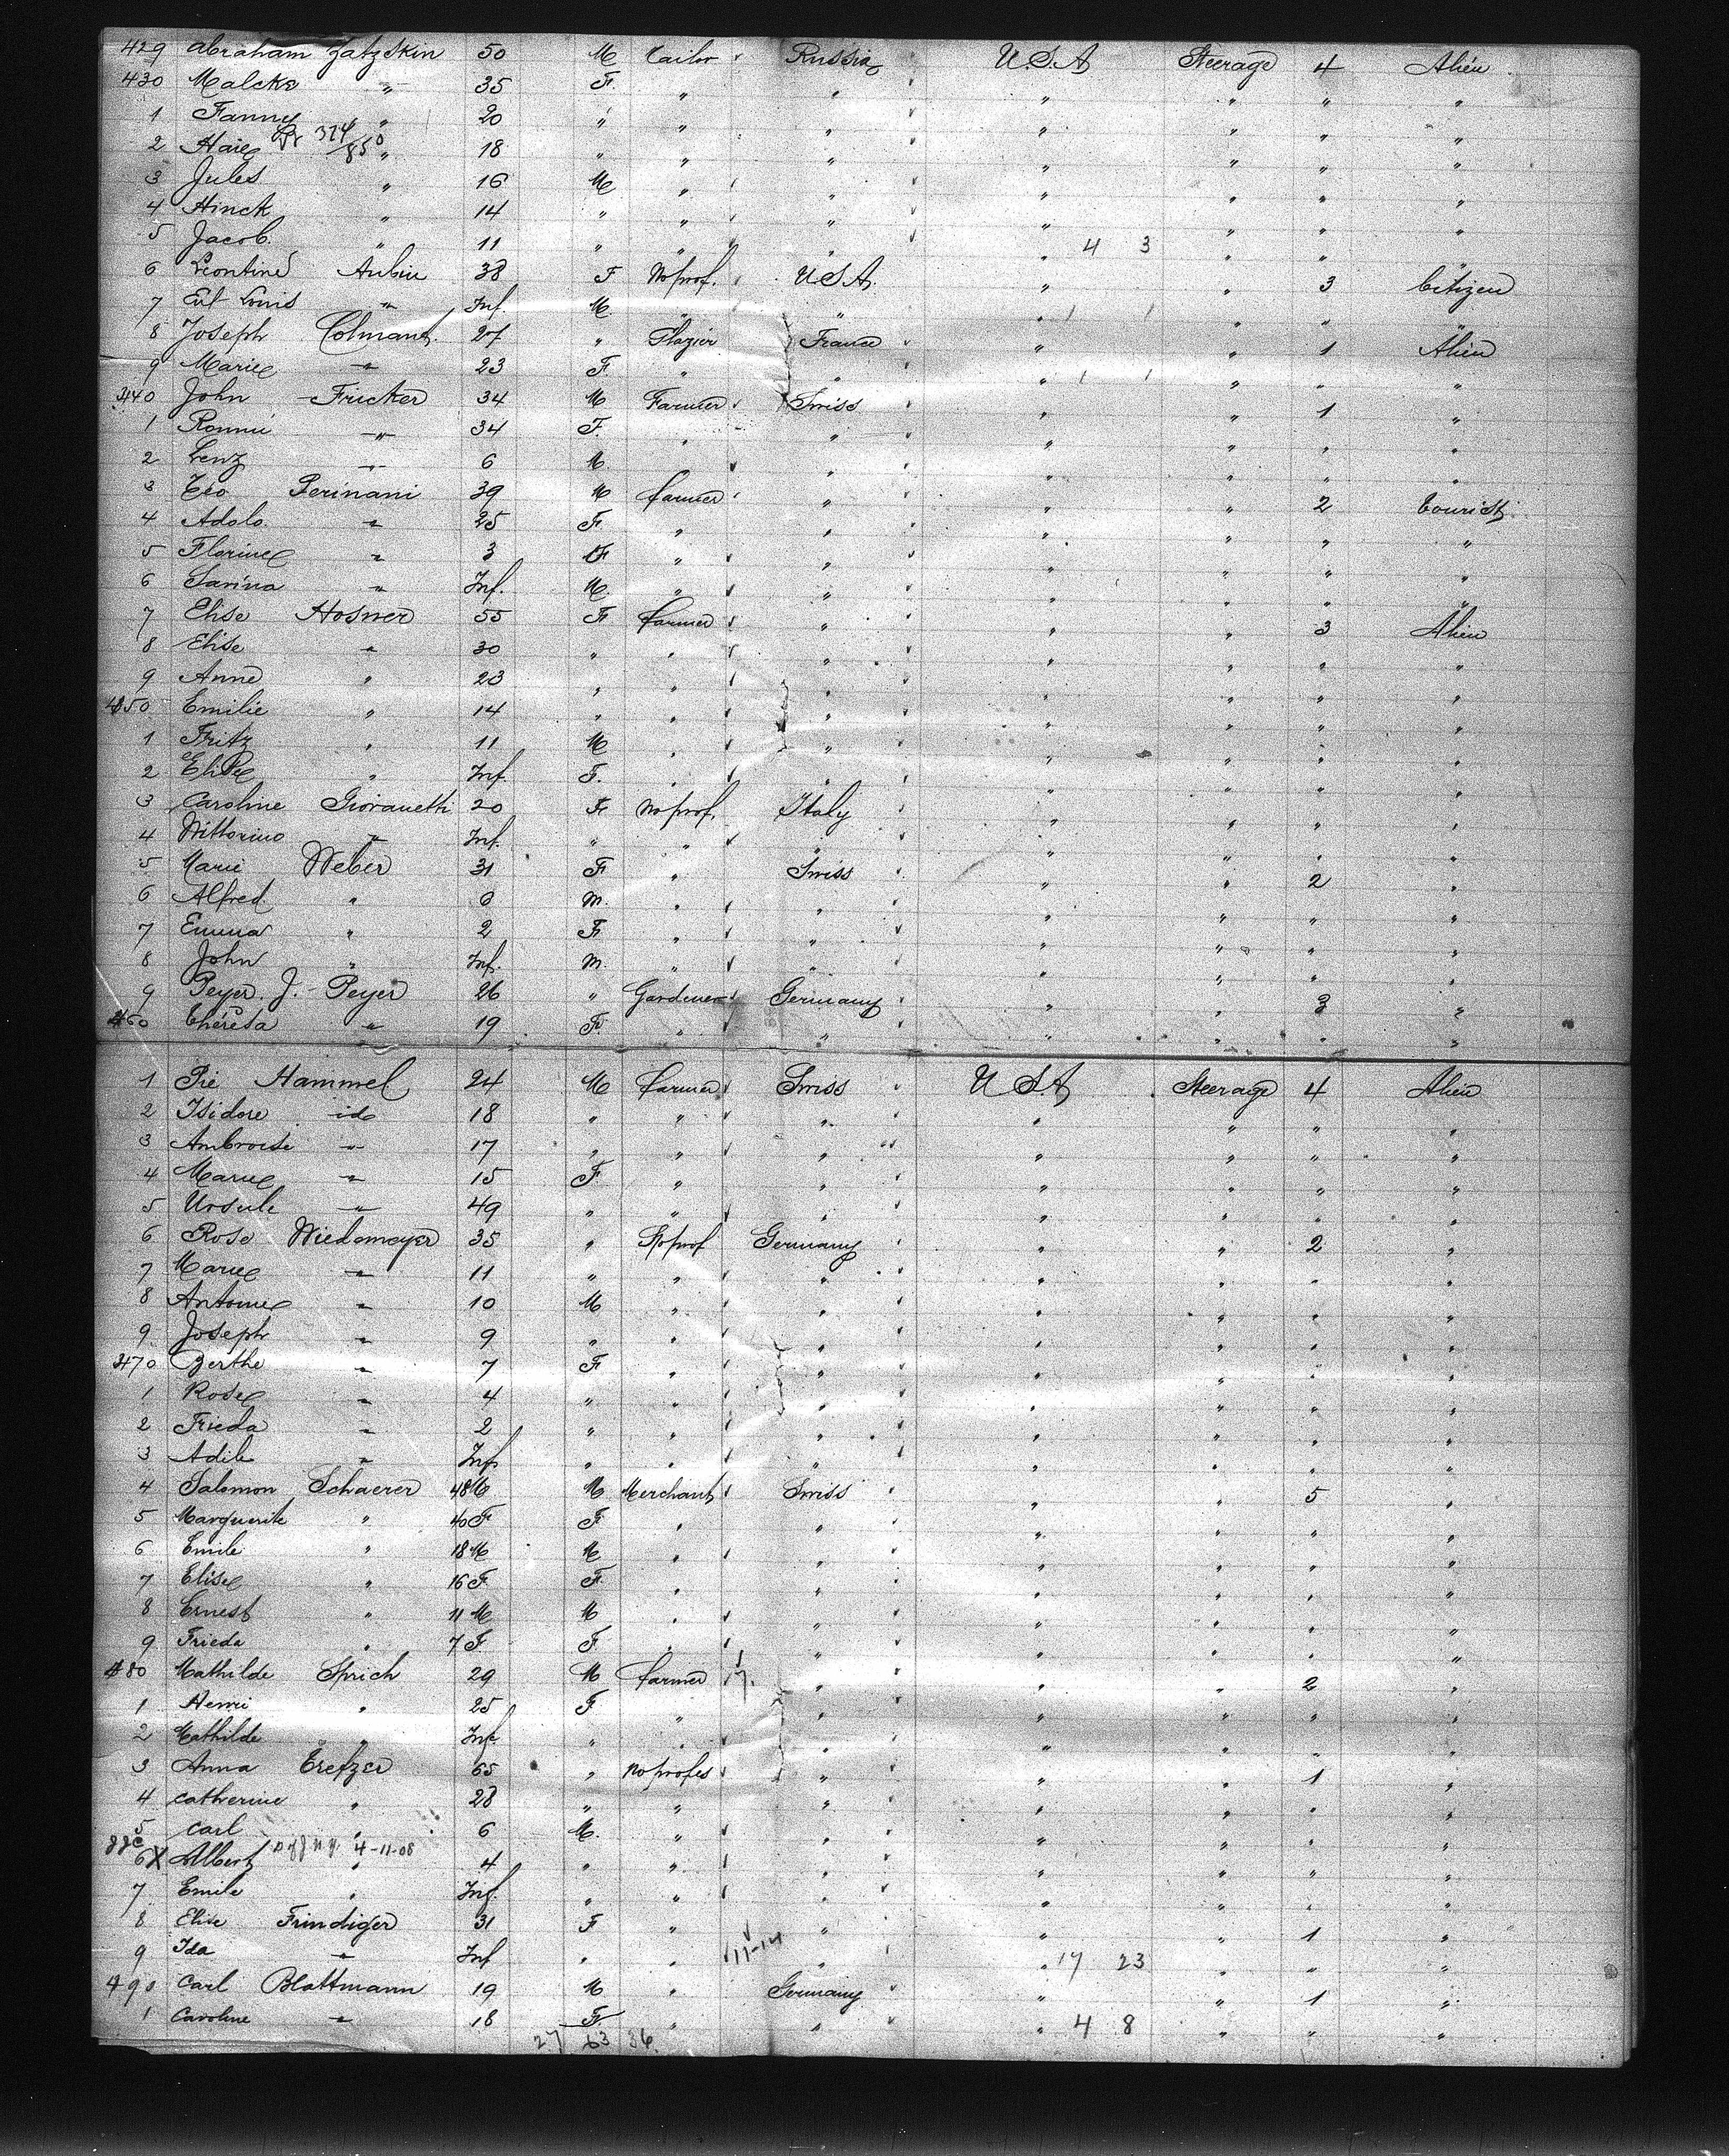 429 Abraham Zatzskin 50 M Tailor Russia U.S.A Steerage 4 Alien
430 Malcke " 35 F. " " " " " "
1 Fanny " 20 " " " " " " "
2 Marie 374/850 " 18 " " " " " " "
3 Jules " 16 M " " " " " "
4 Hinck " 14 " " " " " " "
5 Jacob " 11 " " " " 4 3 " " "
6 Léontine Aubin 38 F No prof. U.S.A. " " 3 Citizen
7 Louis " Inf. M " " " " " "
8 Joseph Colmant 27 " Glazier France " " 1 Alien
9 Marie " 23 F. " " " " " "
440 John Fricker 34 M Farmer Swiss " " 1 "
1 " 34 F. " " " " " "
2 Lenz " 6 M " " " " "
3 Léo Perinani 39 M farmer " " " 2 Tourist
4 Adolo. " 25 F " " " " " "
5 Florine " 3 F " " " " " "
6 Sarina " Inf. M. " " " " " "
7 Elise Hosner 55 F farmer " " " 3 Alien
8 Elise " 30 " " " " " " "
9 Anne " 23 " " " " " " "
450 Emilie " 14 " " " " " " "
1 Fritz " 11 M " " " " " "
2 Elise " Inf. F. " " " " " "
3 Caroline Giovanetti 20 F No prof. Italy " " " "
4 Vittorino " Inf. " " " " " " "
5 Marie Weber 31 F " Swiss " " 2 "
6 Alfred " 6 M. " " " " " "
7 Emma " 2 F " " " " " "
8 John " Inf. M. " " " " " "
9 Peyer. J. Peyer 26 " Gardener Germany " " 3 "
460 Théresa " 19 F. " " " " " "
1 Pie Hammel 24 M farmer Swiss U.S.A Steerage 4 Alien
2 Isidore id 18 " " " " " " "
3 Ambroise " 17 " " " " " " "
4 Marie " 15 F " " " " " "
5 Ursule " 49 " " " " " " "
6 Rose Wiedemeyer 35 " No prof Germany " " 2 "
7 Marie " 11 " " " " " " "
8 Antoine " 10 M " " " " " "
9 Joseph " 9 " " " " " " "
470 Berthe " 7 F " " " " " "
1 Rose " 4 " " " " " " "
2 Frieda " 2 " " " " " " "
3 Adile " Inf. " " " " " " "
4 Salomon Schaerer 48 M M Merchant Swiss " " 5 "
5 Marguerite " 40 F F " " " " " "
6 Emile " 18 M M " " " " " "
7 Elise " 16 F F. " " " " " "
8 Ernest " 11 M M " " " " " "
9 Frieda " 7 F. F " " " " " "
480 Mathilde Sprich 29 M farmer 17. " " " 2 "
1 Henri " 25 F " " " " " "
2 Mathilde " Inf. " " " " " " "
3 Anna Eretzer 65 " No profes " " " 1 "
4 Catherine " 28 " " " " " " "
5 Carl " 6 M. " " " " " "
6 X Albert 4-11-08 " 4 " " " " " " "
7 Emile " Inf. " " " " " " "
8 Elise Frindiger 31 F " " " " 1 "
9 Ida " Inf " " 11-14 " " 17 23 " " "
490 Carl Blattmann 19 M " Germany " " 1 "
1 Caroline " 18 F. " " " 4 8 " " "
27 63 36